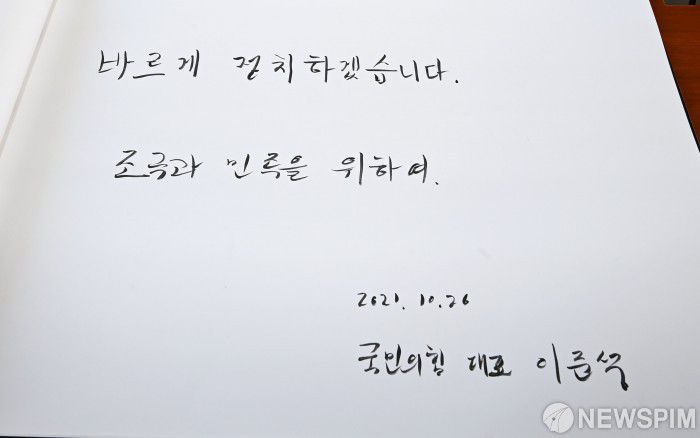 바르게 정치하겠습니다.
조국과 민족을 위하여.
2021. 10. 26
국민의힘 대표 이준석
NEWSPIM